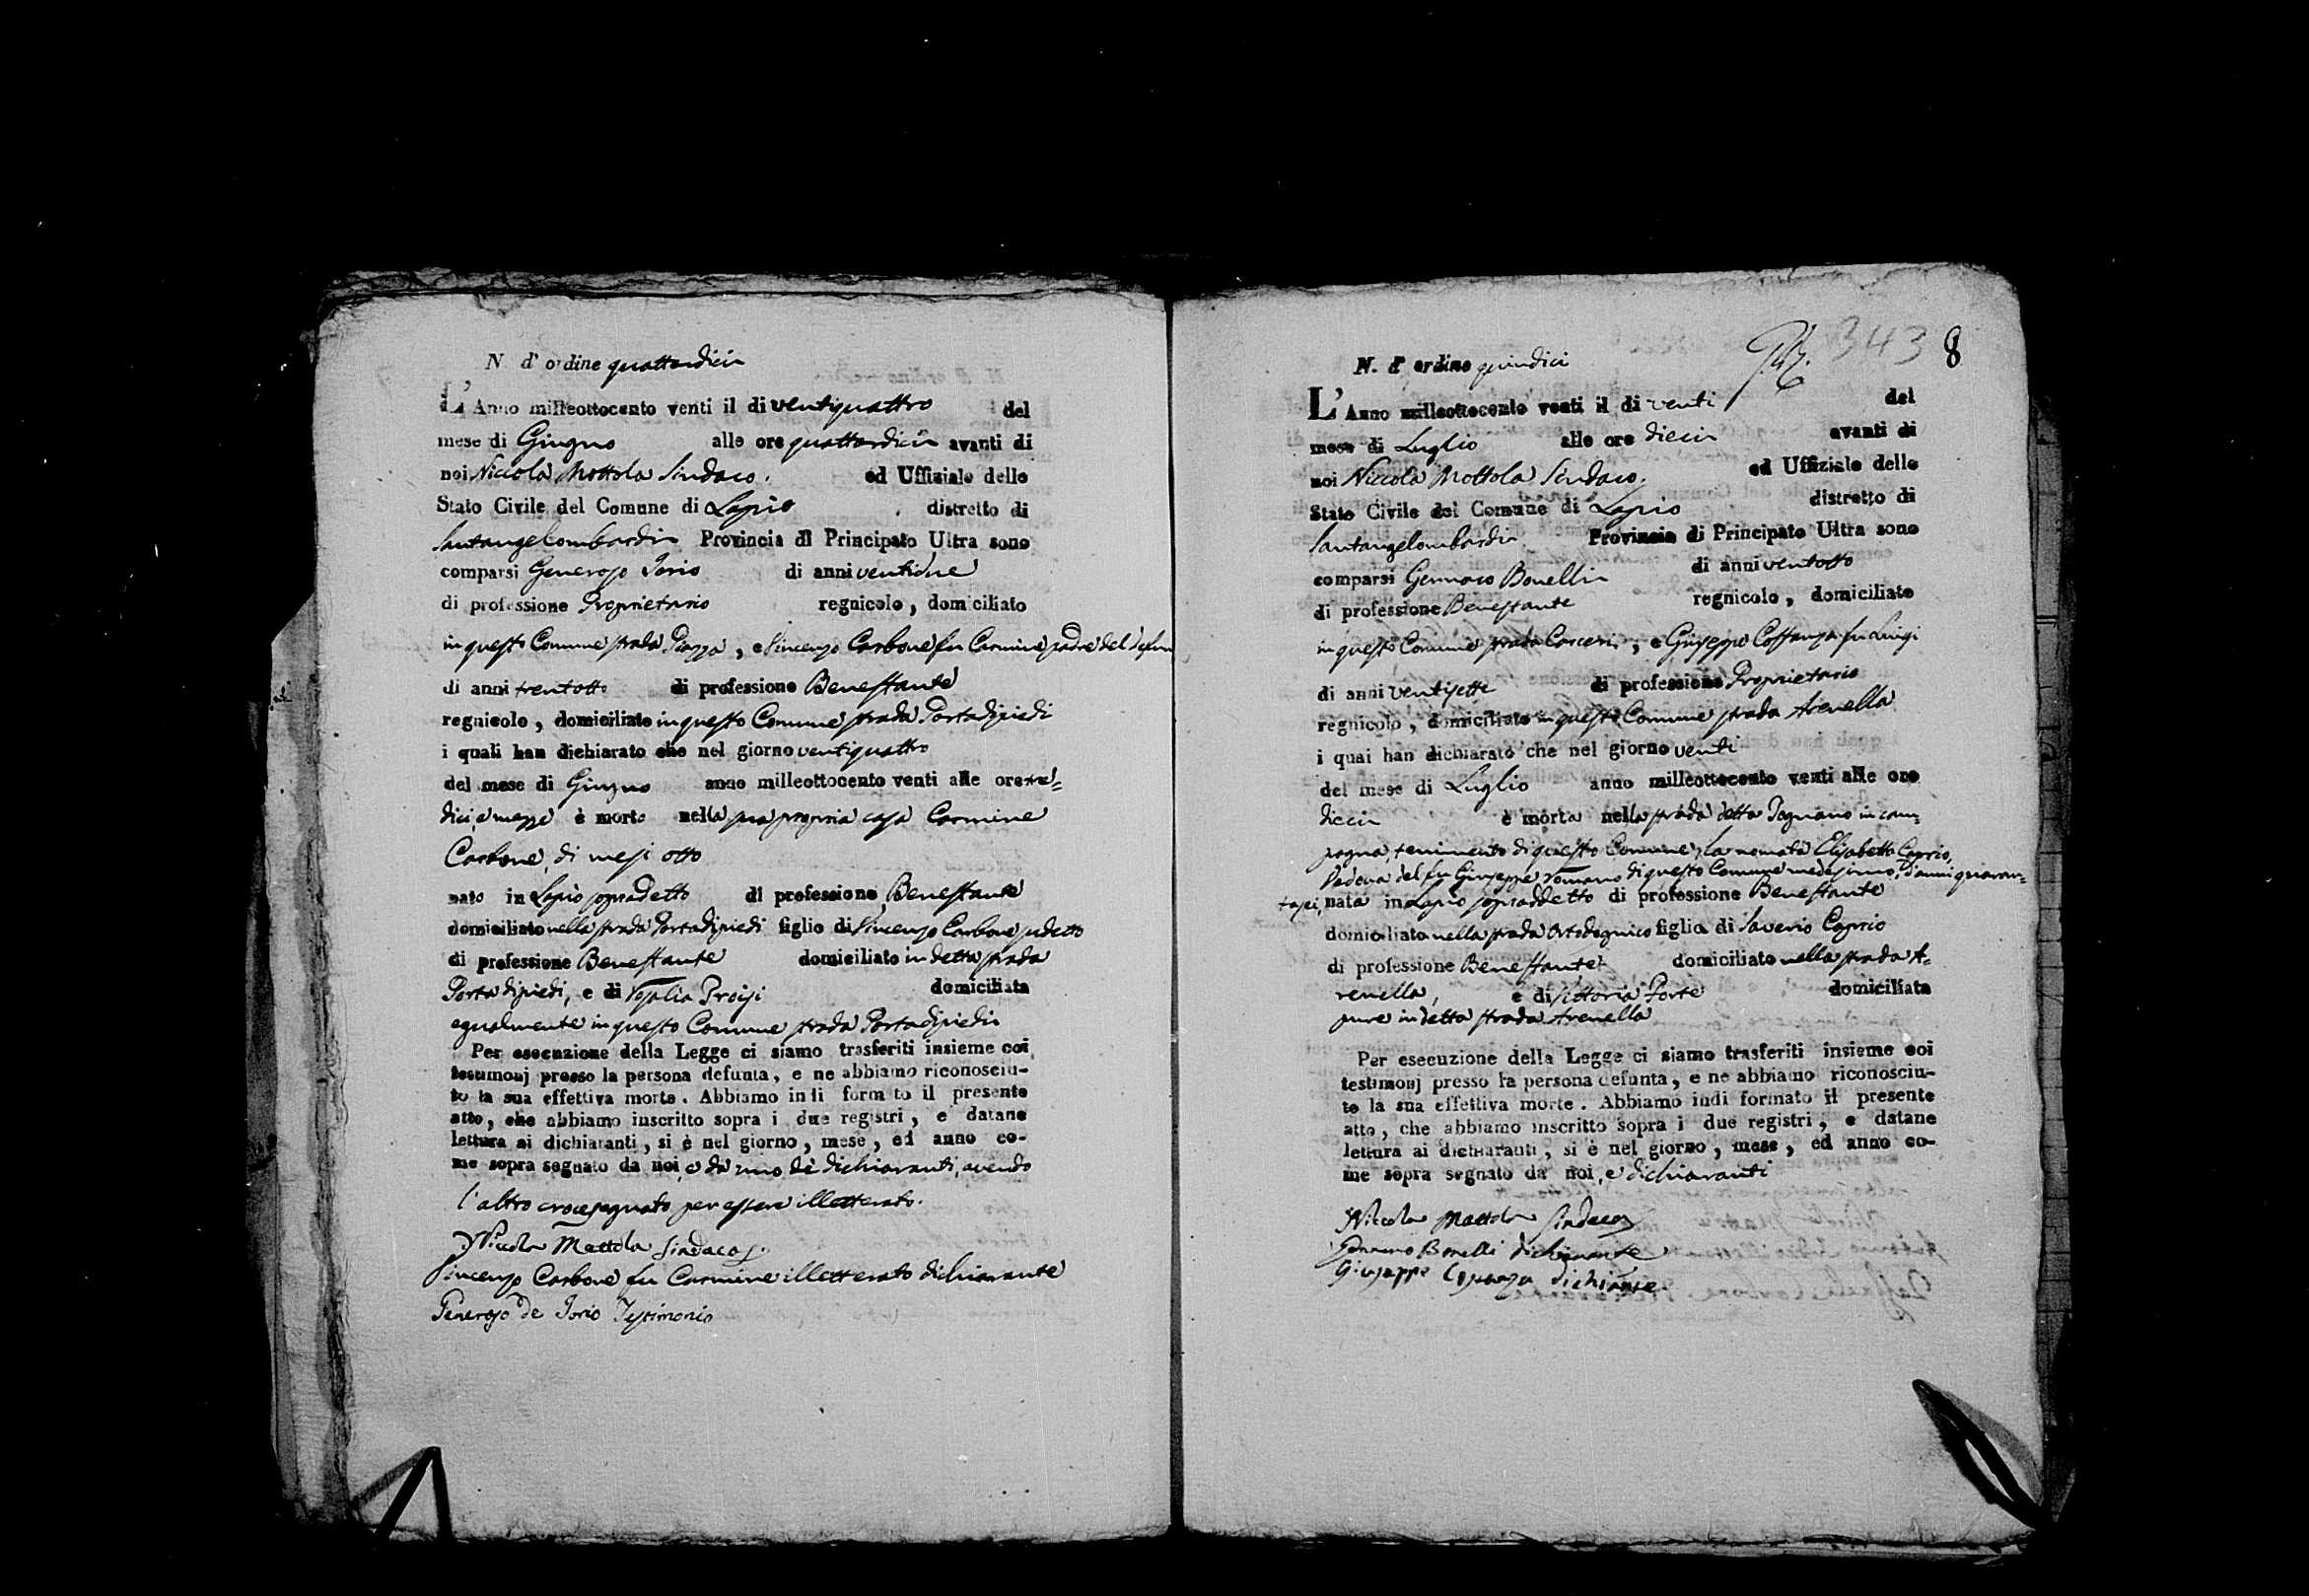 N. d'ordine quattordici
L'Anno milleottocento venti il di ventiquattro del
mese di Giugno alle ore quattordici avanti di
noi Niccola Mottola Sindaco. ed Uffiziale dello
Stato Civile del Comune di Lapio distretto di
Santangelombardi Provincia di Principato Ultra sono
comparsi Generoso Iorio di anni ventidue
di professione Proprietario regnicolo, domiciliato
in questo Comune strada Piazza, e Vincenzo Carbone fu Carmine padre del defun
di anni trentotto di professione Benestante
regnicolo, domiciliato in questo Comune strada Portadipiedi
i quali han dichiarato che nel giorno ventiquattro
del mese di Giugno anno milleottocento venti alle ore tre=
dici, e mezze è morto nella sua propria casa Carmine
Carbone, di mesi otto
nato in Lapio sopradetto di professione Benestante
domiciliato nella strada Portadipiedi figlio di Vincenzo Carbone sudetto
di professione Benestante domiciliato in detta strada
Portadipiedi, e di Rosalia Troisi domiciliata
egualmente in questo Comune strada Portadipiedi
Per esecuzione della Legge ci siamo trasferiti insieme coi
testimonj presso la persona defunta, e ne abbiamo riconosciu-
to la sua effettiva morte. Abbiamo indi formato il presente
atto, che abbiamo inscritto sopra i due registri, e datane
lettura ai dichiaranti, si è nel giorno, mese, ed anno co-
me sopra segnato da noi, e da uno de dichiaranti, avendo
l'altro crocesegnato per essere illetterato.
Niccola Mottola Sindaco
Vincenzo Carbone fu Carmine illetterato dichiarante
Generoso de Iorio Testimonio
343 8
N. d'ordine quindici
L'Anno milleottocento venti il di venti del
mese di Luglio alle ore dieci avanti di
noi Niccola Mottola Sindaco. ed Uffiziale dello
Stato Civile del Comune di Lapio distretto di
Santangelombardi Provincia di Principato Ultra sono
comparsi Gennaro Bonelli di anni ventotto
di professione Benestante regnicolo, domiciliato
in questo Comune strada Carceri, e Giuseppe Costanza fu Luigi
di anni ventisette di professione Proprietario
regnicolo, domiciliato in questo Comune strada Arenella
i quai han dichiarato che nel giorno venti
del mese di Luglio anno milleottocento venti alle ore
dieci è morta nella strada detta in cam=
pagna, tenimento di questo Comune, la nomata Elisabetta Caprio,
Vedova del fu Giuseppe Romano di questo Comune medesimo, d'anni quaran=
tasei, nata in Lapio sopraddetto di professione Benestante
domiciliata nella strada figlia di Saverio Caprio
di professione Benestante domiciliato nella strada A=
renella, e di Vittoria Forte domiciliata
pure in detta strada Arenella
Per esecuzione della Legge ci siamo trasferiti insieme coi
testimonj presso la persona defunta, e ne abbiamo riconosciu-
to la sua effettiva morte. Abbiamo indi formato il presente
atto, che abbiamo inscritto sopra i due registri, e datane
lettura ai dichiaranti, si è nel giorno, mese, ed anno co-
me sopra segnato da noi, e dichiaranti
Niccola Mottola Sindaco
Gennaro Bonelli dichiarante
Giuseppe Costanza dichiarante